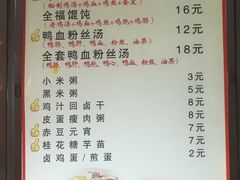 (秘制鸡汤+鸭血+鸭肠+蛋皮)
全福馄饨 16元
鸭血粉丝汤 12元
(鸭肠、鸭肝、鸭血、粉丝、油果)
全套鸭血粉丝汤 18元
小米粥 3元
黑米粥 3元
鸡汁回卤干 5元
皮蛋瘦肉粥 8元
赤豆元宵 7元
桂花糖芋苗 7元
卤鸡蛋/煎蛋 2元